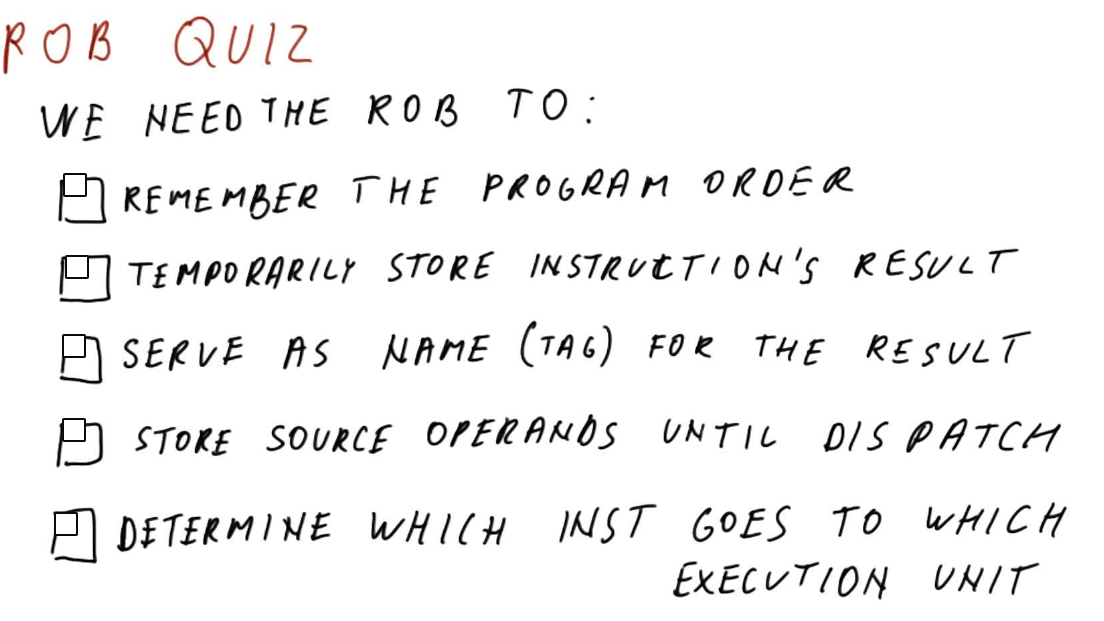 ROB QUIZ
WE NEED THE ROB TO:
REMEMBER THE PROGRAM ORDER
TEMPORARILY STORE INSTRUCTION'S RESULT
SERVE AS NAME (TAG) FOR THE RESULT
STORE SOURCE OPERANDS UNTIL DISPATCH
DETERMINE WHICH INST GOES TO WHICH
EXECUTION UNIT